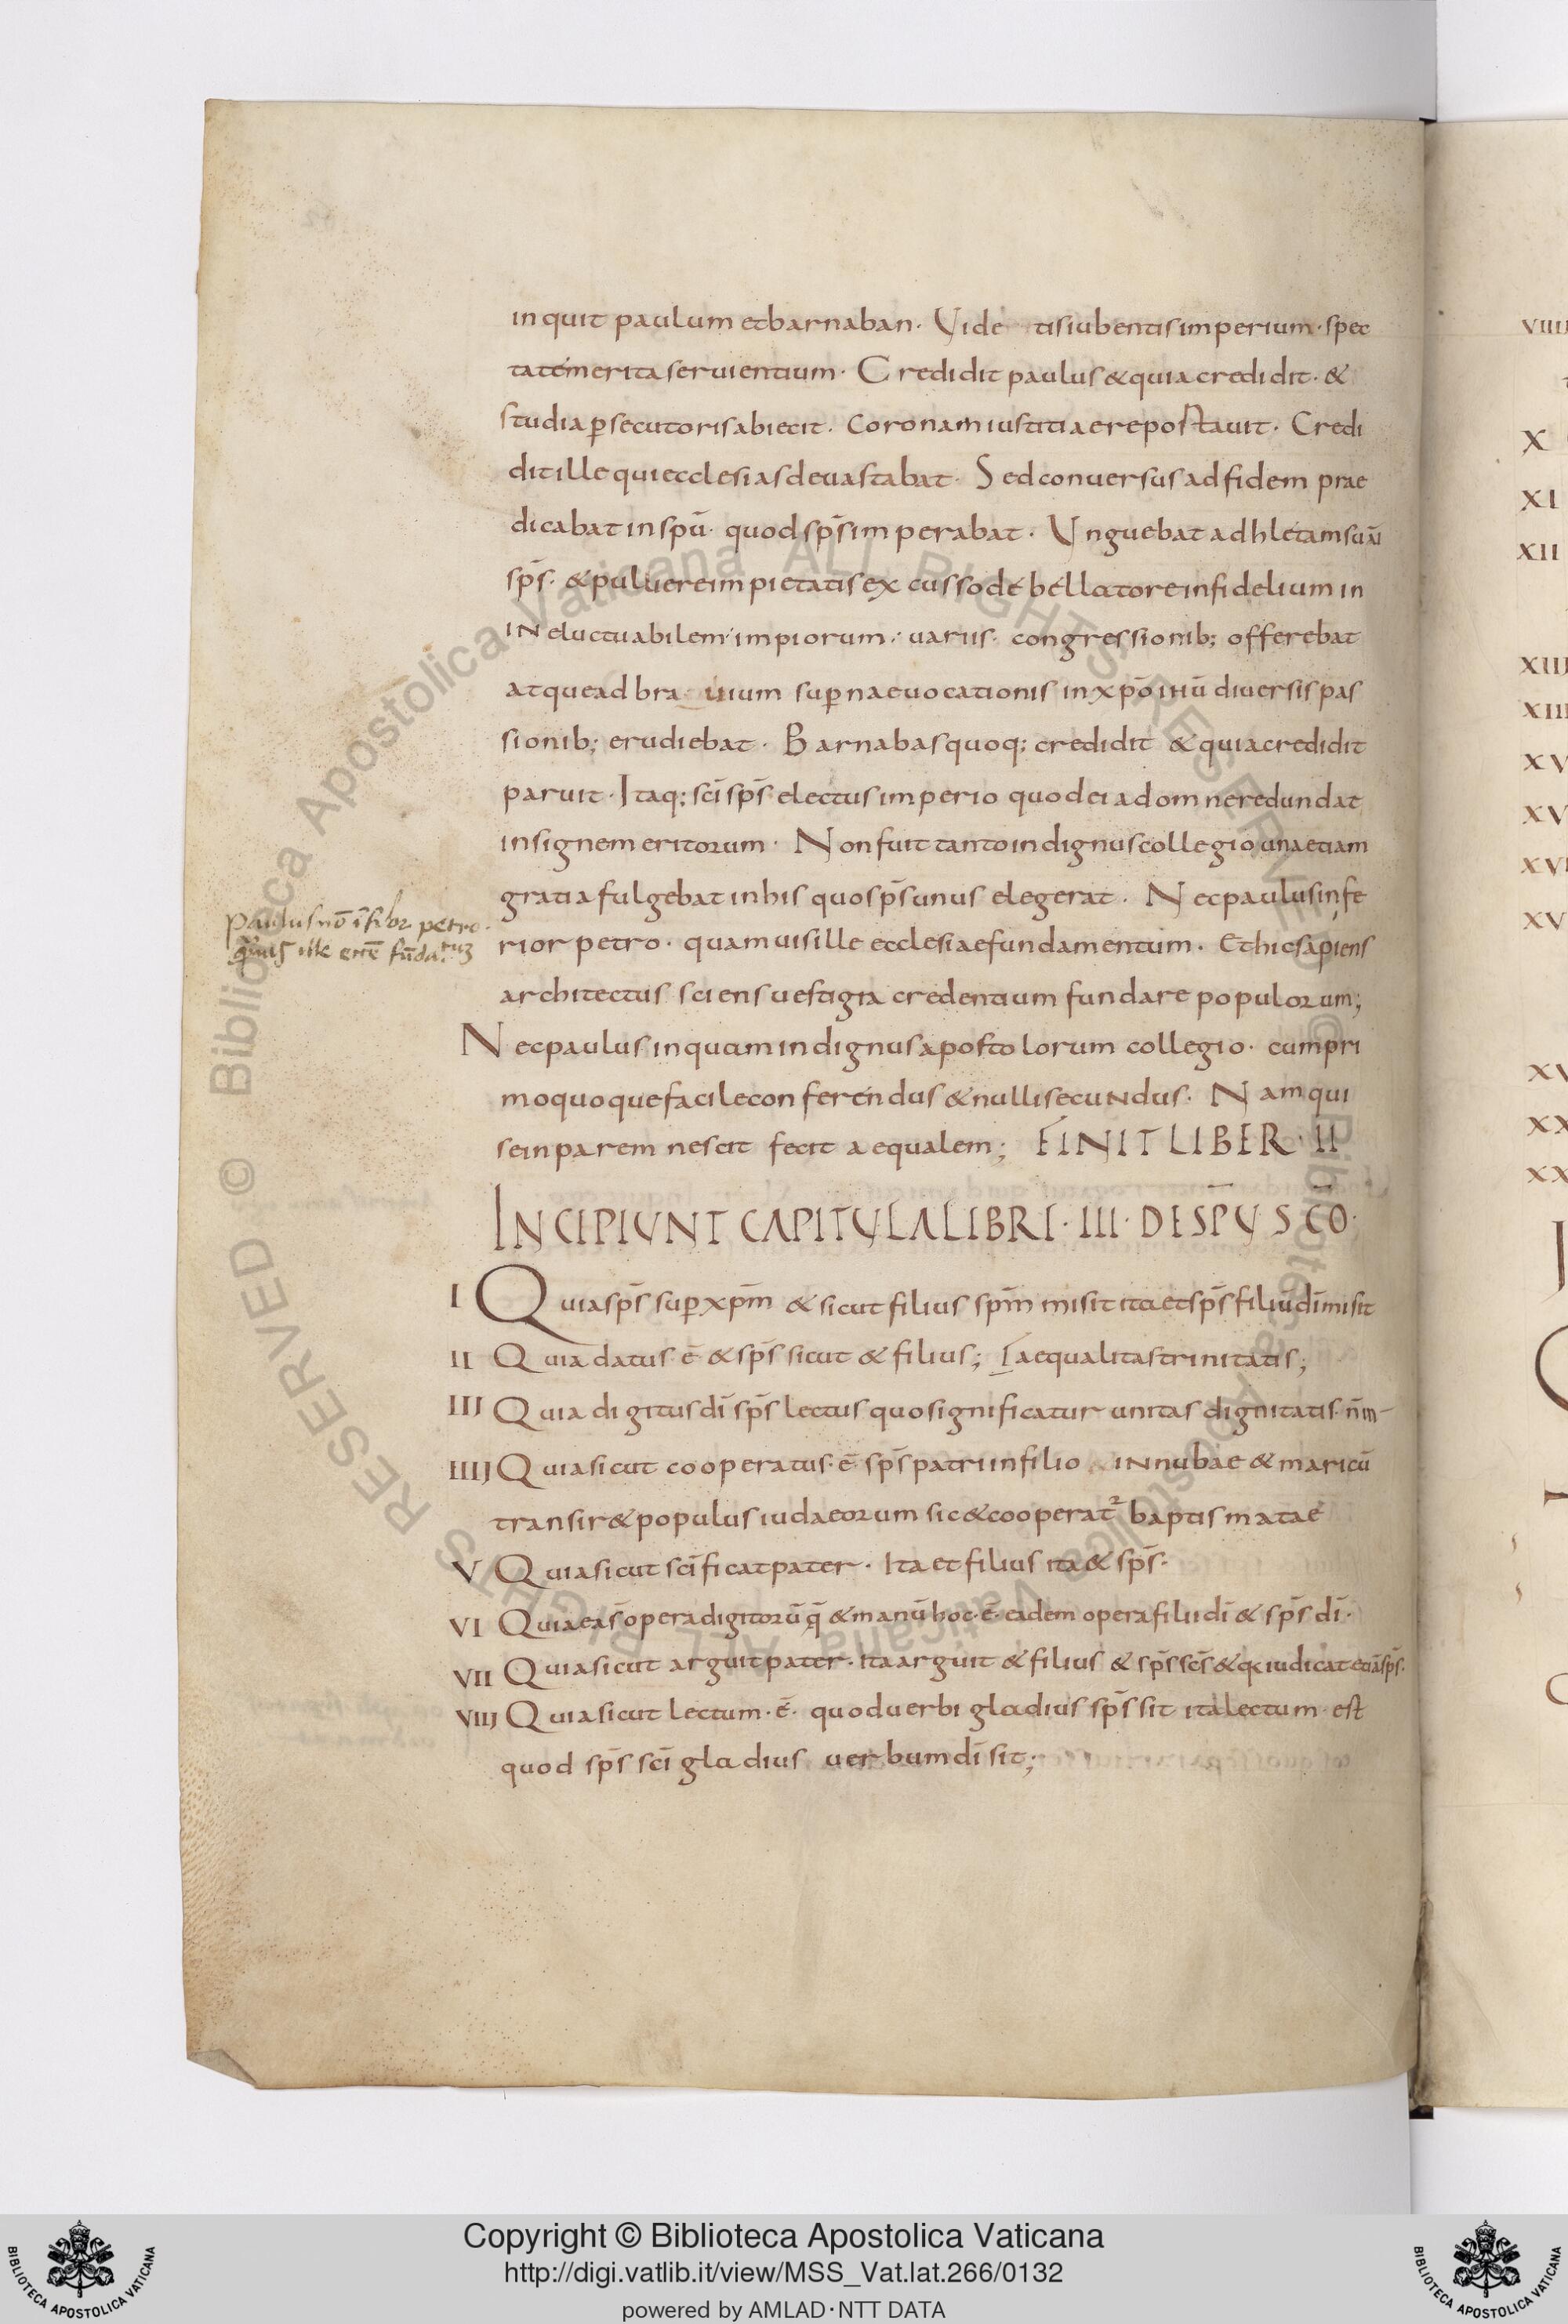 inquit paulum et barnaban. Vide tis iubentis imperium. spec
tate merita seruientium. Credidit paulus & quia credidit. &
studia p̱secutoris abiecit. coronam iustitiae repostauit. Credi
dit ille qui ecclesias deuastabat. Sed conuersus ad fidem prae
dicabat in spū. quod sp̄s imperabat. Vnguebat adhletam suā
sp̄s. & puluere impietatis excusso de bellatore infidelium in
ineluctuabilem impiorum. uariis. congressionib; offerebat
atque ad bra uium sup̱nae uocationis in xp̄o ihū diuersis pas
sionib; erudiebat. Barnabas quoq; credidit & quia credidit
paruit. Itaq; sc̄i sp̄s electus imperio quod ei ad omne redundat
insigne meritorum. Non fuit tanto indignus collegio una etiam
gratia fulgebat in his quos sp̄s unus elegerat. Nec paulus infe
Paulus nō īferior petro.
rior petro. quamuis ille ecclesiae fundamentum. Et hic sapiens
architectus sciens uestigia credentium fundare populorum;
Nec paulus inquam indignus apostolorum collegio. cum pri
mo quoque facile conferendus & nulli secundus. Nam qui
se inparem nescit fecit aequalem; FINIT LIBER. II
INCIPIUNT CAPITULA LIBRI. III. DE SPU SCŌ.
I Quia sp̄s sup̱ xp̄m & sicut filius sp̄m misit ita et sp̄s filiū dī misit
II Quia datus. ē & sp̄s sicut & filius; aequalitas trinitatis;
III Quia digitus dī sp̄s lectus quo significatur unitas dignitatis. n̄m
IIII Quia sicut cooperatus. ē. sp̄s patri in filio in nubae & mari cū
transir& populus iudaeorum sic & cooperat² baptismatae
V Quia sicut sc̄ificat pater. Ita et filius ita & sp̄s.
VI Quia eas opera digitorū q̄ & manū hoc. ē. eadem opera filii dī & sp̄s dī.
VII Quia sicut arguit pater. Ita arguit & filius & sp̄s sc̄s & iudicat etiā sp̄s.
VIII Quia sicut lectum. ē. quod uerbi gladius sp̄s sit ita lectum est
quod sp̄s sc̄i gladius uerbum dī sit;
VIIII
X
XI
XII
Copyright © Biblioteca Apostolica Vaticana
http://digi.vatlib.it/view/MSS_Vat.lat.266/0132
powered by AMLAD·NTT DATA
BIBLIOTECA APOSTOLICA VATICANA
BIBLIOTECA APOSTOLICA VATICANA
© Biblioteca Apostolica Vaticana ALL RIGHTS RESERVED
© Biblioteca Apostolica Vaticana ALL RIGHTS RESERVED